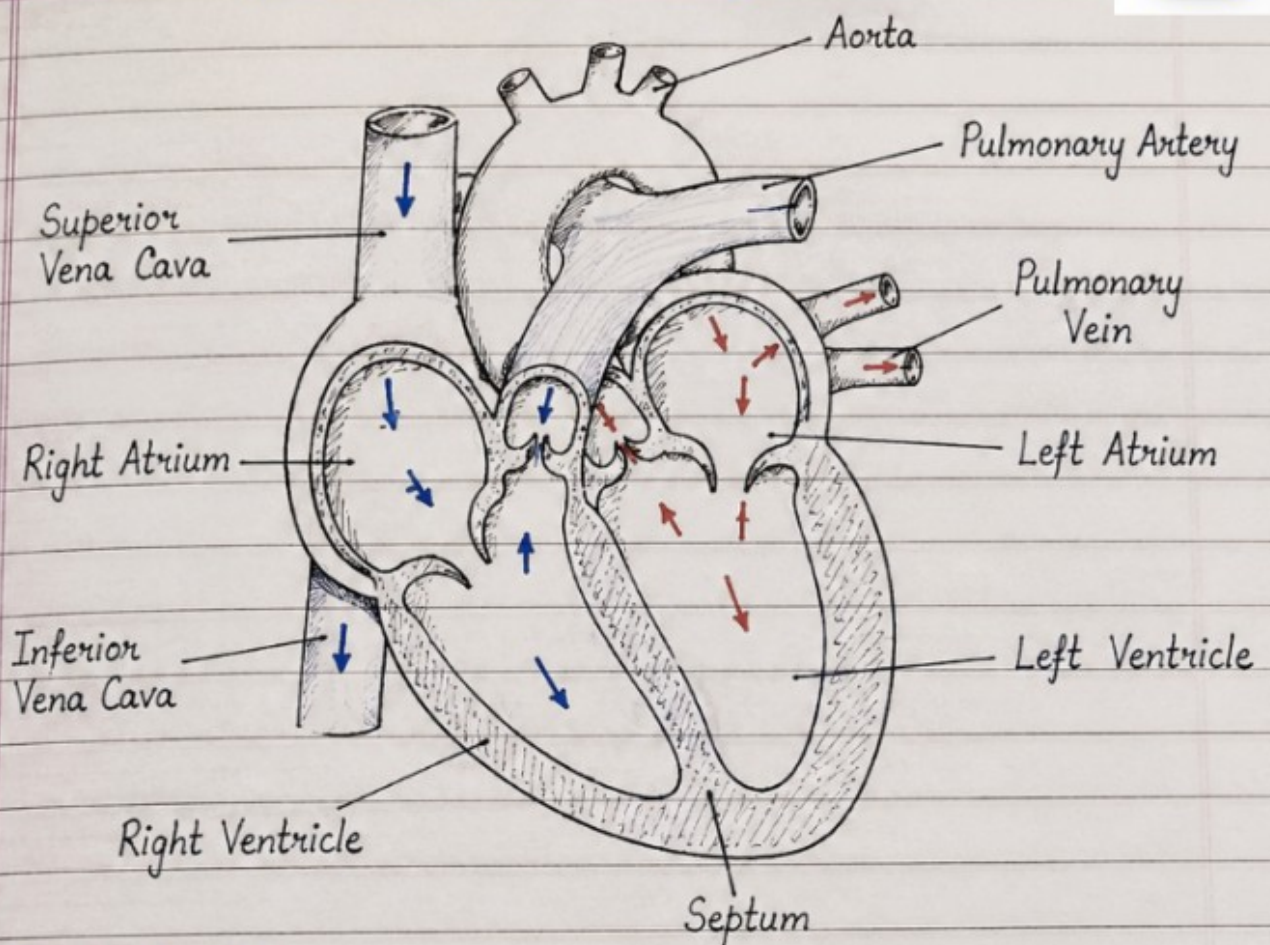 Aorta
Pulmonary Artery
Superior
Vena Cava
Pulmonary
Vein
Right Atrium
Left Atrium
Inferior
Vena Cava
Left Ventricle
Right Ventricle
Septum